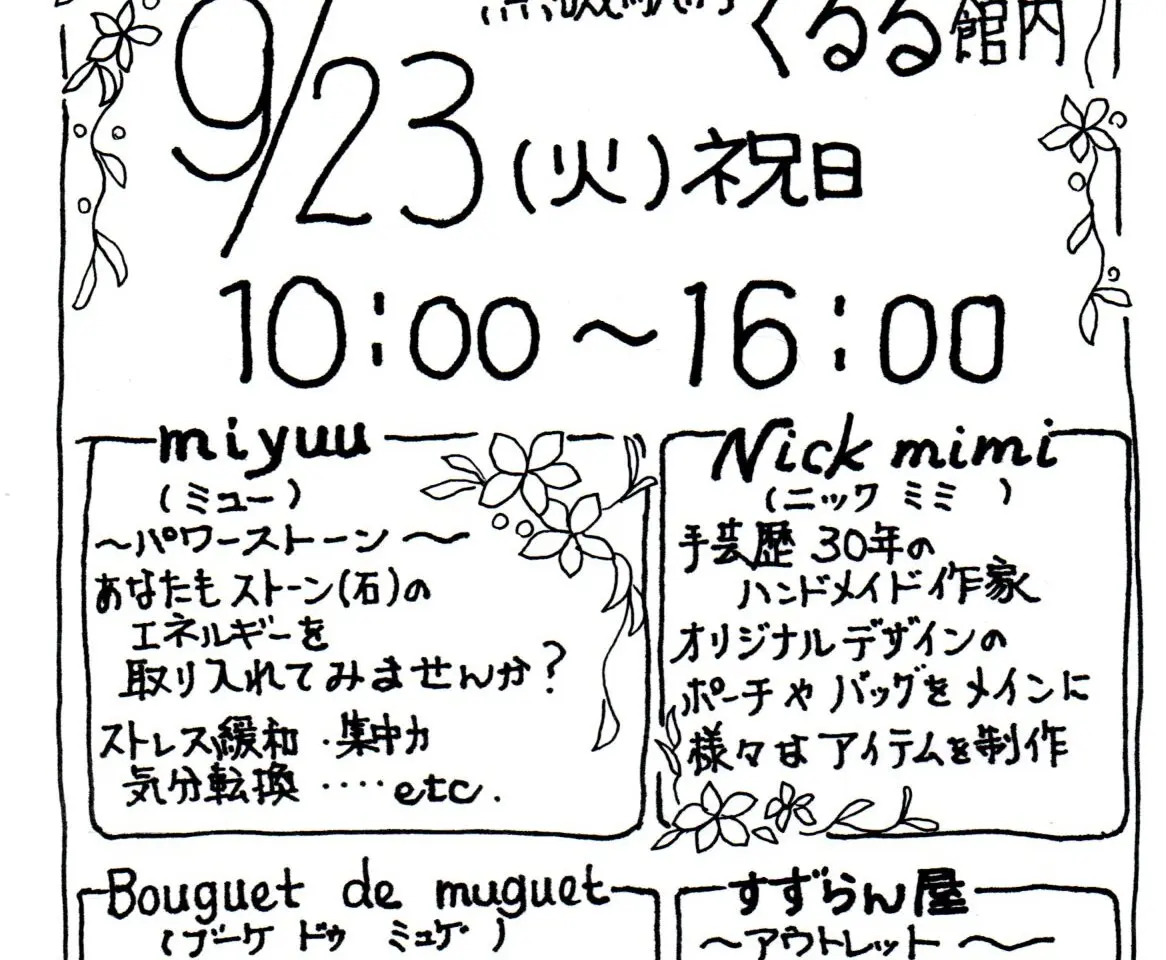 くるる館内
9/23(火)祝日
10:00～16:00
miyuu
(ミュー)
～パワーストーン～
あなたもストーン(石)の
エネルギーを
取り入れてみませんか?
ストレス緩和・集中力
気分転換‥‥etc.
Nick mimi
(ニック ミミ )
手芸歴 30年の
ハンドメイド作家
オリジナルデザインの
ポーチやバッグをメインに
様々なアイテムを制作
Bouguet de muguet
(ブーケ ドゥ ミュゲ)
すずらん屋
～アウトレット～